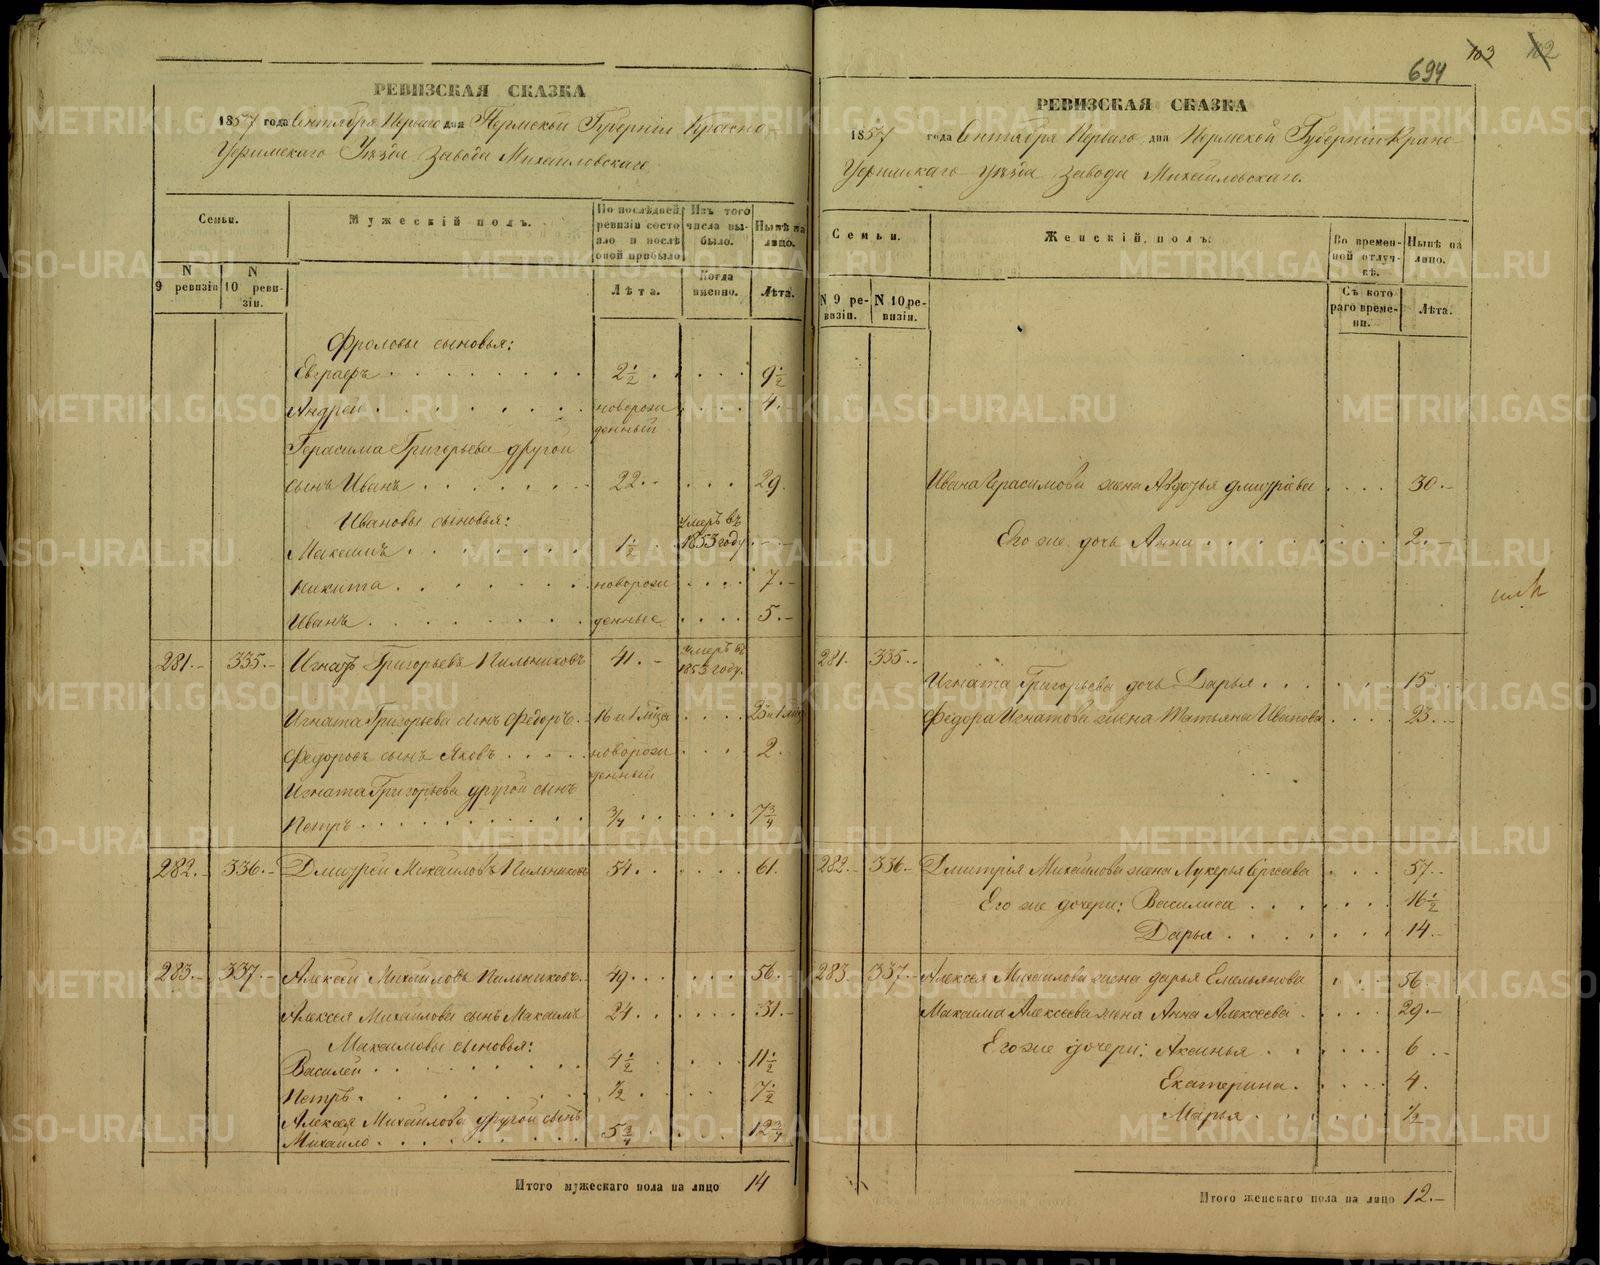 РЕВИЗСКАЯ СКАЗКА
1857 года Сентября Перваго дня Пермской Губерніи Красно-
Уфимскаго Уѣзда Завода Михаиловскаго.
Семьи.
Мужескій полъ.
По послѣдней ревизіи состояло и послѣ оной прибыло
Изъ того числа выбыло.
Нынѣ на лицо.
N 9 ревизіи
N 10 ревизіи.
Лѣта.
Когда именно.
Лѣта.
Фроловы сыновья:
Евграфъ 2 1/2 9 1/2
Андрей новорожденный 4.
Герасима Григорьева другой
сынъ Иванъ 22 29.
Ивановы сыновья:
Максимъ 1 1/2 умеръ въ 1853 году
Никита новорож 7.
Иванъ денные 5.
281. 335. Игнатъ Григорьевъ Пильниковъ 41. умеръ въ 1853 году.
Игната Григорьева сынъ Федоръ 16
Федоровъ сынъ Яковъ новорожденный 2.
Игната Григорьева другой сынъ
Петръ 3/4 7 3/4
282. 336. Дмитрей Михаиловъ Пильниковъ 54 61.
283. 337. Алексей Михаиловъ Пильниковъ 49 56.
Алексея Михаилова сынъ Максимъ 24 31.
Максимовы сыновья:
Василей 4 1/2 11 1/2
Петръ 1/2 7 1/2
Алексея Михаилова другой сынъ
Михаило 5 3/4 12 3/4
Итого мужескаго пола на лицо 14
694 103 102
РЕВИЗСКАЯ СКАЗКА
1857 года Сентября Перваго дня Пермской Губерніи Красно
Уфимскаго уѣзда Завода Михаиловскаго.
Семьи.
Женскій полъ.
Во временной отлучкѣ.
Нынѣ на лицо.
N 9 ревизіи.
N 10 ревизіи.
Съ котораго времени.
Лѣта.
Ивана Герасимова жена Авдотья Дмитріева 30.
Его же дочь Анна 2.
281. 335.
Игната Григорьева дочь Дарья 15
Федора Игнатова жена Татьяна Иванова 23.
282. 336. Дмитрія Михаилова жена Лукерья Сергеева 57.
Его же дочери: Василиса 16 1/2
Дарья 14.
283. 337. Алексея Михаилова жена Дарья Емельянова 56
Максима Алексеева жена Анна Алексеева 29.
Его же дочери: Аксинья 6
Екатерина 4.
Марья 1/2
Итого женскаго пола на лицо 12.
METRIKI.GASO-URAL.RU